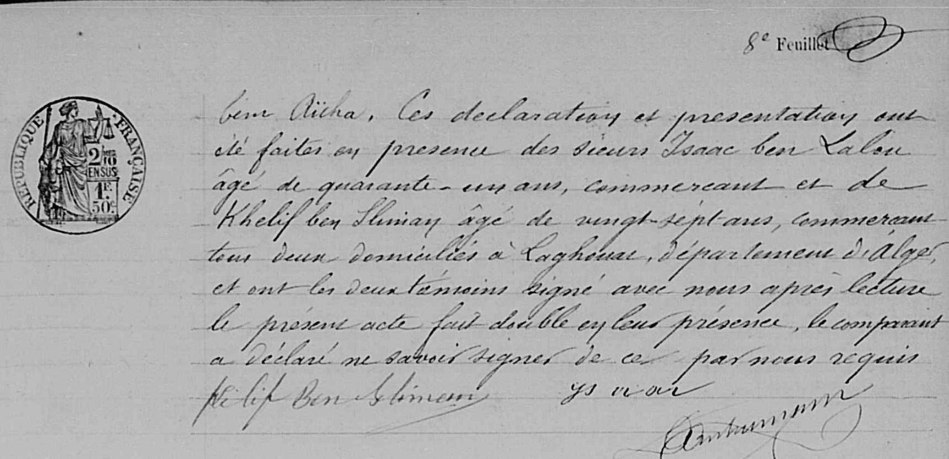 8e Feuillet
RÉPUBLIQUE FRANÇAISE
2 10mes
EN SUS
1F.
50c
ben Aïcha. Ces declaration et presentation ont
été faites en presence des sieurs Isaac ben Lalou
âgé de quarante-un ans, commercant et de
Khelif ben Sliman âgé de vingt-sept ans, commercant
tous deux domiciliés à Laghouat, département d'Alger,
et ont les deux témoins signé avec nous après lecture
le présent acte fait double en leur présence, le comparant
a déclaré ne savoir signer de ce par nous requis
Khelif Ben Slimen